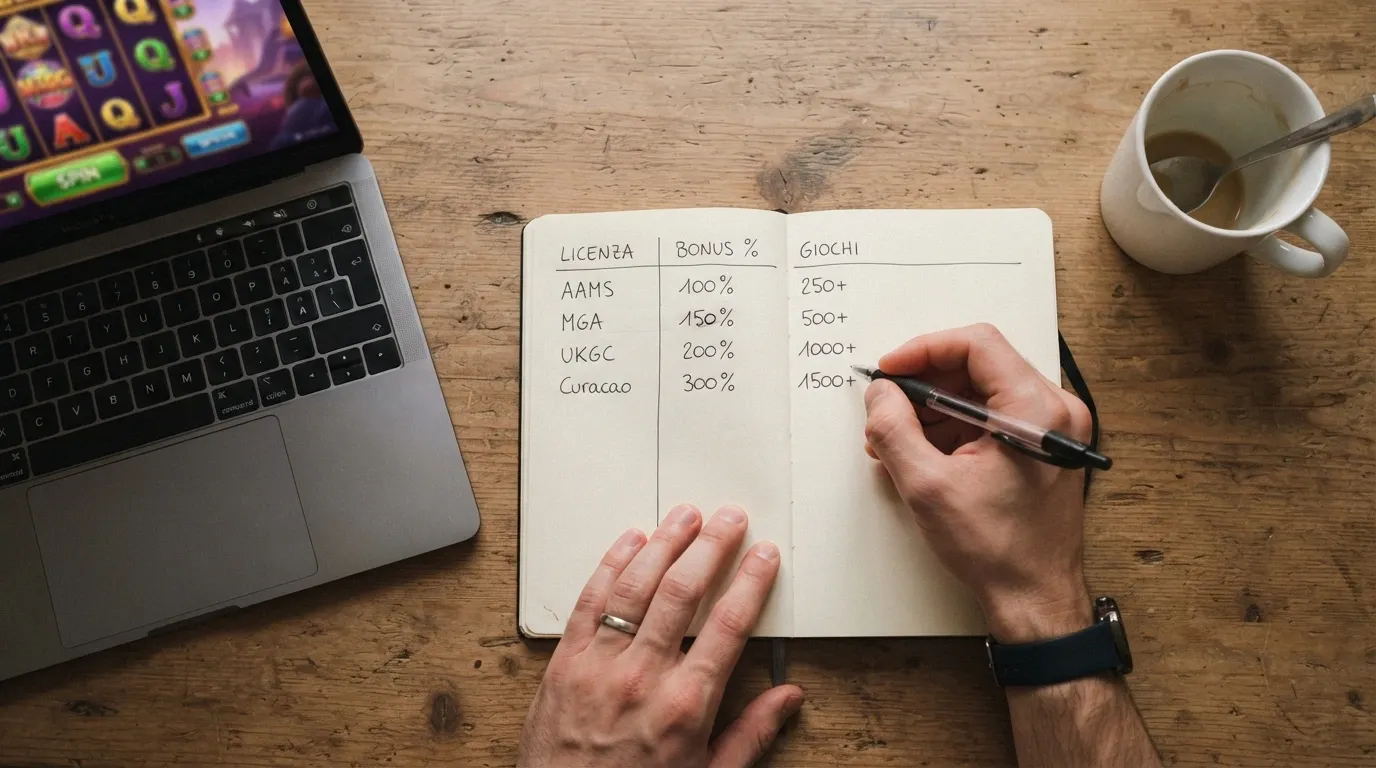 LICENZA BONUS % GIOCHI
AAMS 100% 250+
MGA 150% 500+
UKGC 200% 1000+
Curacao 300% 1500+
Q
Q
U
Q
J
U
A
SPIN